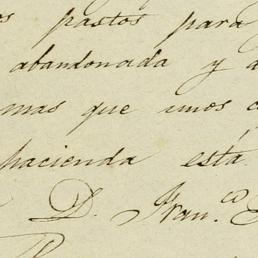 os pastos para
abandonada y a
mas que unos c
hacienda está
D. Fran.co